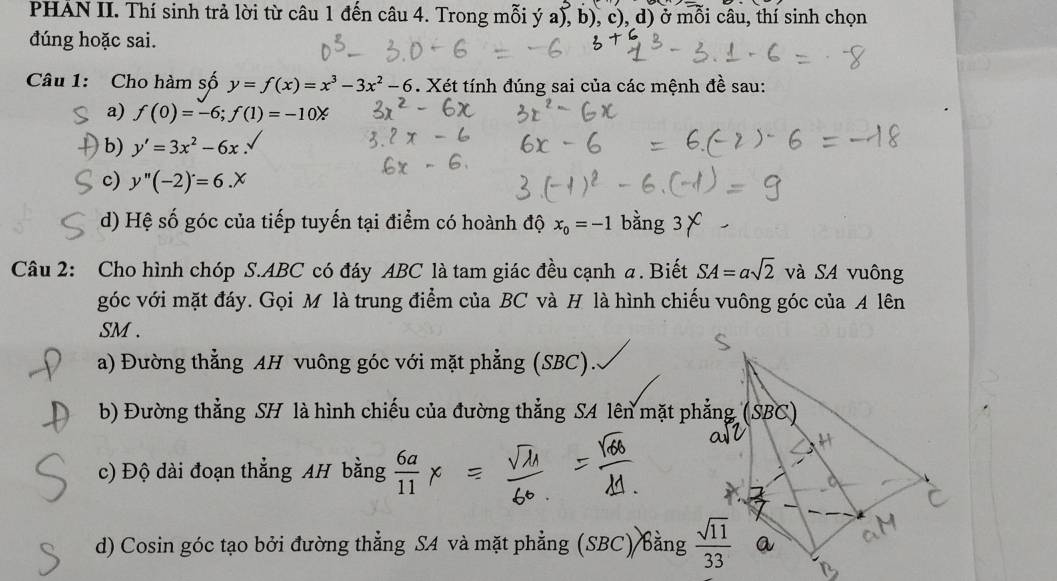 PHẦN II. Thí sinh trả lời từ câu 1 đến câu 4. Trong mỗi ý a), b), c), d) ở mỗi câu, thí sinh chọn
đúng hoặc sai.
0³ - 3.0 - 6 = -6 1³ - 3.1 - 6 = -8
Câu 1: Cho hàm số y = f(x) = x³ - 3x² - 6. Xét tính đúng sai của các mệnh đề sau:
S a) f(0) = -6; f(1) = -10. 3x² - 6x 3x² - 6x
Đ b) y' = 3x² - 6x. 3.2x - 6 6x - 6 = 6.(-2) - 6 = -18
6x - 6.
S c) y"(-2) = 6. 3.(-1)² - 6.(-1) = 9
S d) Hệ số góc của tiếp tuyến tại điểm có hoành độ x₀ = -1 bằng 3
Câu 2: Cho hình chóp S.ABC có đáy ABC là tam giác đều cạnh a. Biết SA = a√2 và SA vuông
góc với mặt đáy. Gọi M là trung điểm của BC và H là hình chiếu vuông góc của A lên
SM.
S
Đ a) Đường thẳng AH vuông góc với mặt phẳng (SBC).
Đ b) Đường thẳng SH là hình chiếu của đường thẳng SA lên mặt phẳng (SBC)
a√2 H
S c) Độ dài đoạn thẳng AH bằng 6a/11 = √11/60 = √66/11.
C
M
S d) Cosin góc tạo bởi đường thẳng SA và mặt phẳng (SBC) bằng √11/33 a
B